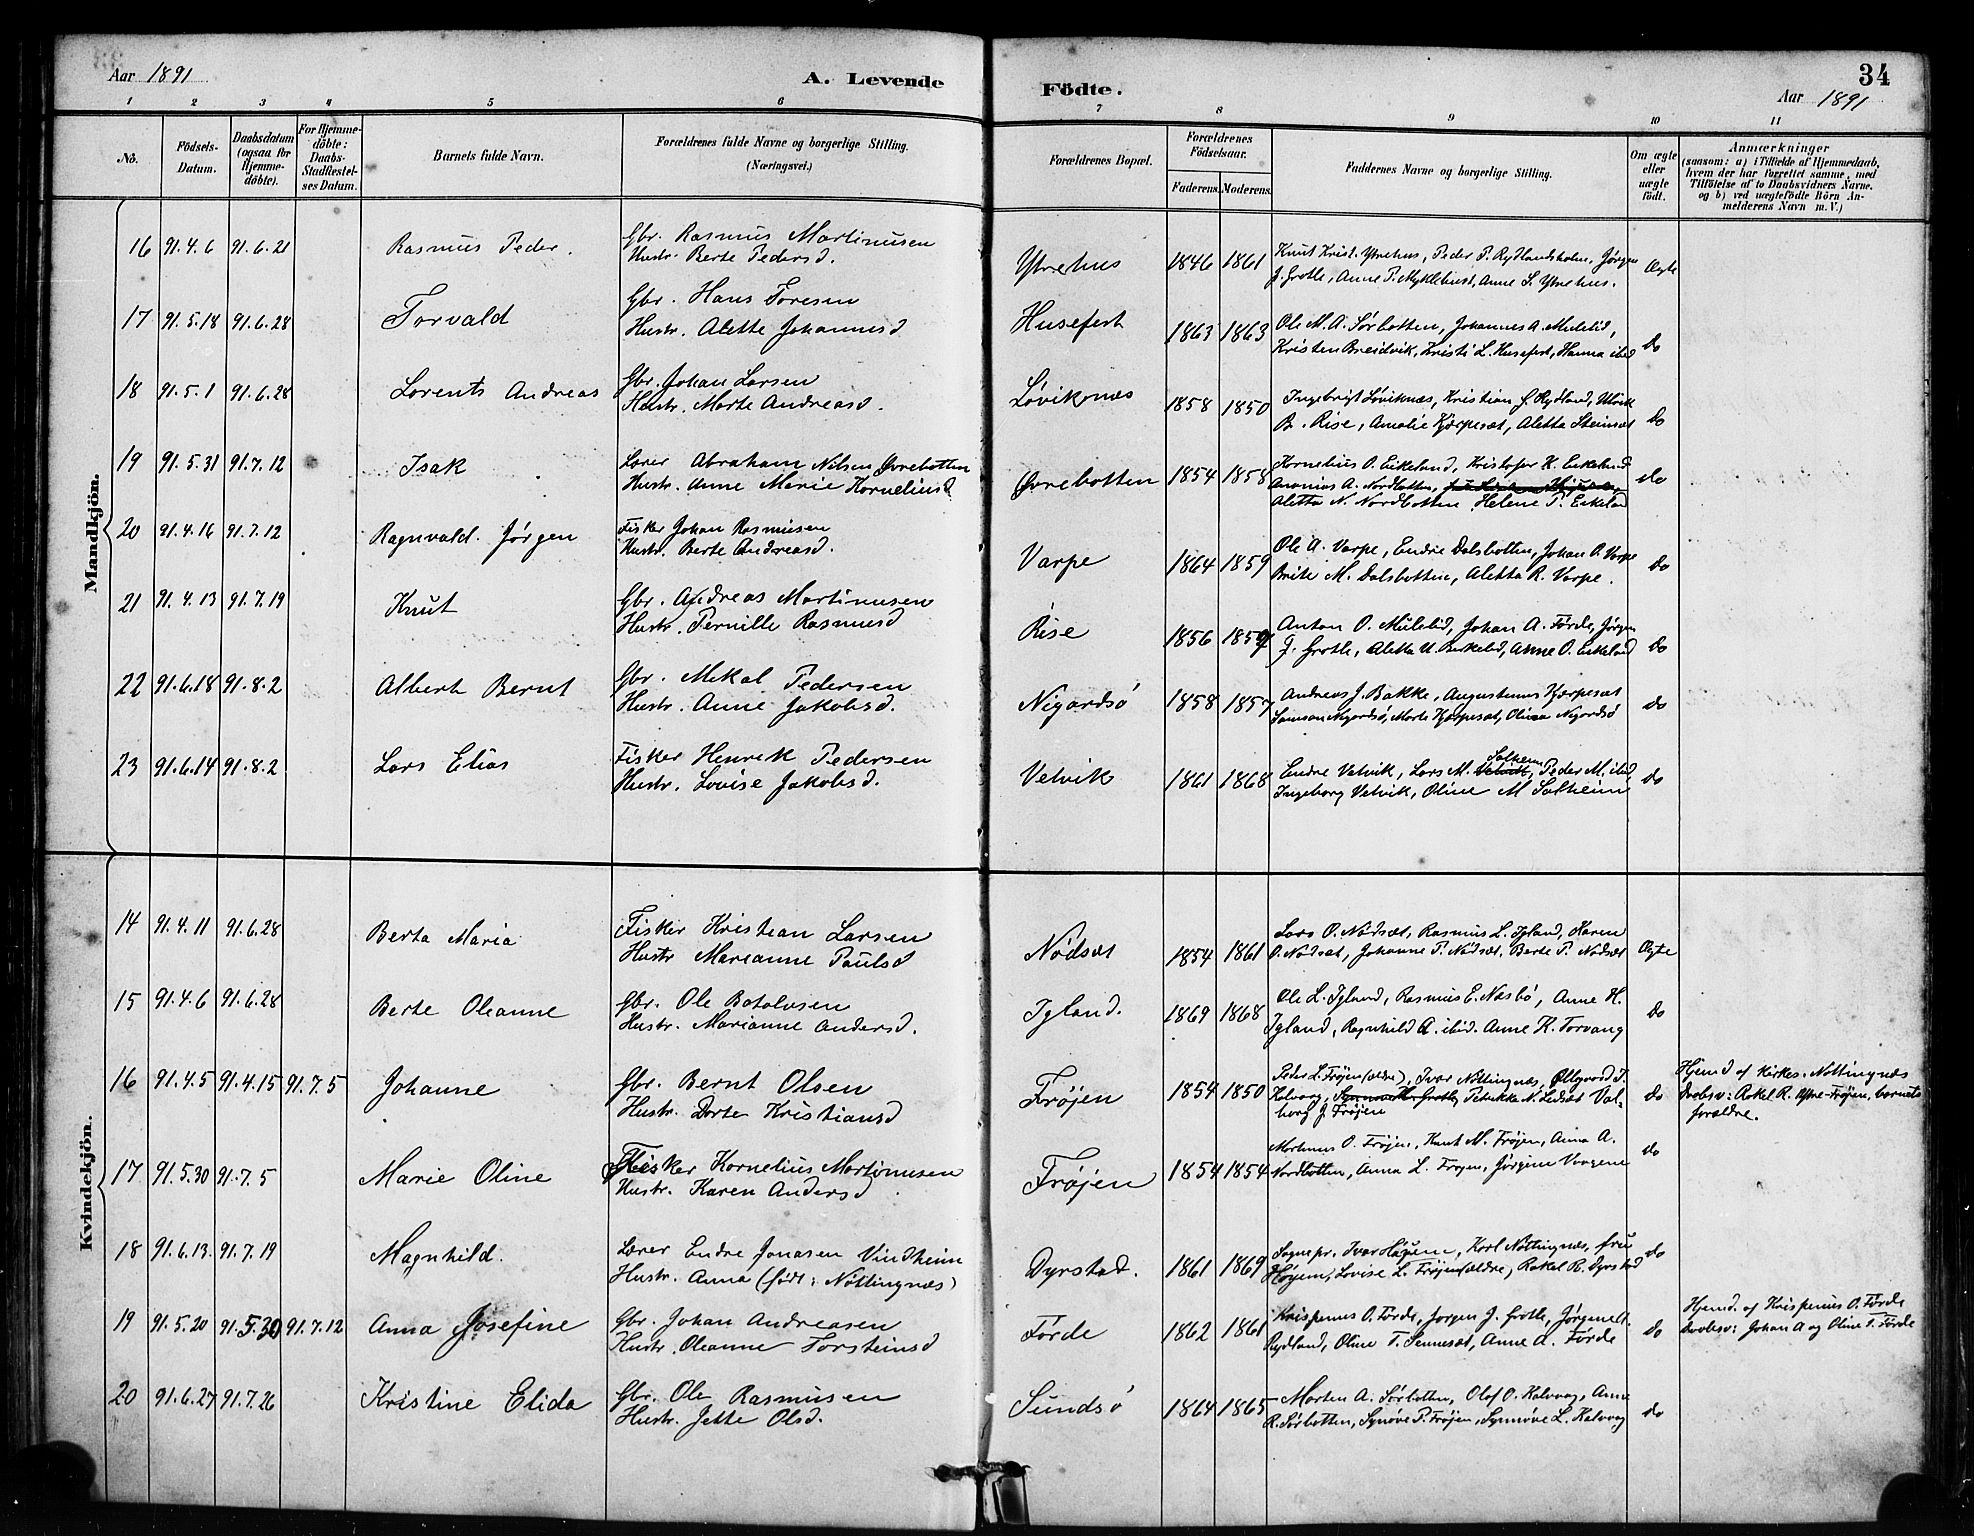 Aar 1891 A. Levende Födte. 34
Aar 1891
1 2 3 4 5 6 7 8 9 10 11
No. Födsels-Datum. Daabsdatum (ogsaa for Hjemme-döbte). For Hjemme-döbte: Daabs-Stadfæstel-ses Datum. Barnets fulde Navn. Forældrenes fulde Navne og borgerlige Stilling. (Næringsvei.) Forældrenes Bopæl. Forældrenes Födselsaar. Faderens. Moderens. Faddernes Navne og borgerlige Stilling. Om ægte eller uægte födt. Anmærkninger (saasom: a) i Tilfælde af Hjemmedaab, hvem der har forrettet samme, med Tilföielse af to Daabsvidners Navne, og b) ved uægtefödte Börn An-melderens Navn m. V.)
Mandkjön.
16 91.4.6 91.6.21 Rasmus Peder. Gbr. Rasmus Martinusen Ytrehus 1846 1861 Knut Krist. Ytrehus, Peder P. Rydlandsholm, Jørgen Ægte
Hustr. Berte Pedersd. J. Grotle, Anne P. Myklebust, Anne S. Ytrehus.
17 91.5.18 91.6.28 Torvald Gbr. Hans Toresen Husefest 1863 1863 Ole M. A. Sørbotten, Johannes A. Mulelid, do
Hustr. Alette Johannesd Kristen Breidvik, Kristi L. Husefest, Hanna ibid
18 91.5.1 91.6.28 Lorents Andreas Gbr. Johan Larsen Løviknæs 1858 1850 Ingebrigt Løviknæs, Kristian J. Rydland, do
Hustr. Marte Andreasd. B. Rise, Amalie Kjærpesæt, Aletta Steinsæt
19 91.5.31 91.7.12 Isak Lærer Abraham Nilsen Øvrebotten Øvrebotten 1854 1858 Kornelius O. Eikeland, Kristofer K. Eikeland do
Hustr. Anne Marie Korneliusd Ananias A. Nordbotten,
Aletta N. Nordbotten, Helene P. Eikeland
20 91.4.16 91.7.12 Ragnvald Jørgen Fisker Johan Rasmusen Varpe 1864 1859 Ole A. Varpe, Endre Dalsbotten, Johan O. Varpe do
Hustr. Berte Andreasd. Brite M. Dalsbotten, Aletta R. Varpe.
21 91.4.13 91.7.19 Knut Gbr. Andreas Martinusen Rise 1856 1859 Anton O. Mulelid, Johan A. Førde, Jørgen do
Hustr. Pernille Rasmusd J. Grotle, Aletta U. Birkelid, Anne O. Eikeland
22 91.6.18 91.8.2 Albert Bernt Gbr. Mikal Pedersen Nigardsø 1858 1857 Andreas J. Bakke, Augustinus Kjærpesæt do
Hustr. Anne Jakobsd. Samson Nigardsø, Marte Kjærpesæt, Olina Nigardsø
23 91.6.14 91.8.2 Lars Elias Fisker Henrik Pedersen Velvik 1861 1868 Endre Velvik, Lars M. Velvik Solheim, Peder M. ibid, do
Hustr. Lovise Jakobsd. Ingeborg Velvik, Oline M Solheim
Kvindekjön.
14 91.4.11 91.6.28 Berta Maria Fisker Kristian Larsen Nødsæt 1854 1861 Lars O. Nødsæt, Rasmus L. Igland, Karen Ægte
Hustr Marianne Paulsd O. Nødsæt, Johanne P. Nødsæt, Berte P. Nødsæt
15 91.4.6 91.6.28 Berte Oleanne Gbr. Ole Botolvsen Igland. 1869 1868 Ole L. Igland, Rasmus E. Næsbø, Anne H. do
Hustr. Marianne Andersd. Igland, Ragnhild A. ibid. Anne K. Torvang
16 91.4.5 91.4.15 91.7.5 Johanne Gbr. Bernt Olsen Frøjen 1854 1850 Peder L. Frøjen (ældre), Ivar Nøttingnæs, Øllegaard I. do Hjemd. af Kirkes. Nøttingnæs
Hustr. Dorte Kristiansd Kalvaag, Petrikke N. Ledsæt Val- Daabsv: Rakel R. Ytre-Frøjen, barnets
borg J. Frøjen forældre.
17 91.5.30 91.7.5 Marie Oline Fisker Kornelius Martinusen Frøjen 1854 1854 Martinus O. Frøjen, Knut M. Frøjen, Anna A. do
Hustr. Karen Andersd Nordbotten, Anna L. Frøjen, Jørgine Vaagene
18 91.6.13. 91.7.19 Magnhild. Lærer Endre Jonasen Vindheim Dyrstad. 1861 1869 Sognepr. Ivar Høyem, Karl Nøttingnæs, fru do
Hustr. Anna (født: Nøttingnæs) Høyem, Lovise L. Frøjen (ældre), Rakel R. Dyrstad
19 91.5.20 91.5.30 91.7.12 Anna Josefine Gbr. Johan Andreasen Førde 1862 1861 Krispenus O. Førde, Jørgen J. Grotle, Jørgine A. do Hjemd. af Krispenus O. Førde
Hustr. Oleanne Torsteinsd Rydland, Oline T. Sennesæt, Anne A. Førde Daabsv: Johan A og Oline S. Førde
20 91.6.27 91.7.26 Kristine Elida Gbr. Ole Rasmusen Sundsø 1864 1865 Morten A. Sørbotten, Olaf O. Kalvaag, Anne do
Hustr. Jette Olsd. R. Sørbotten, Synøve P. Frøjen, Synnøve L. Kalvaag